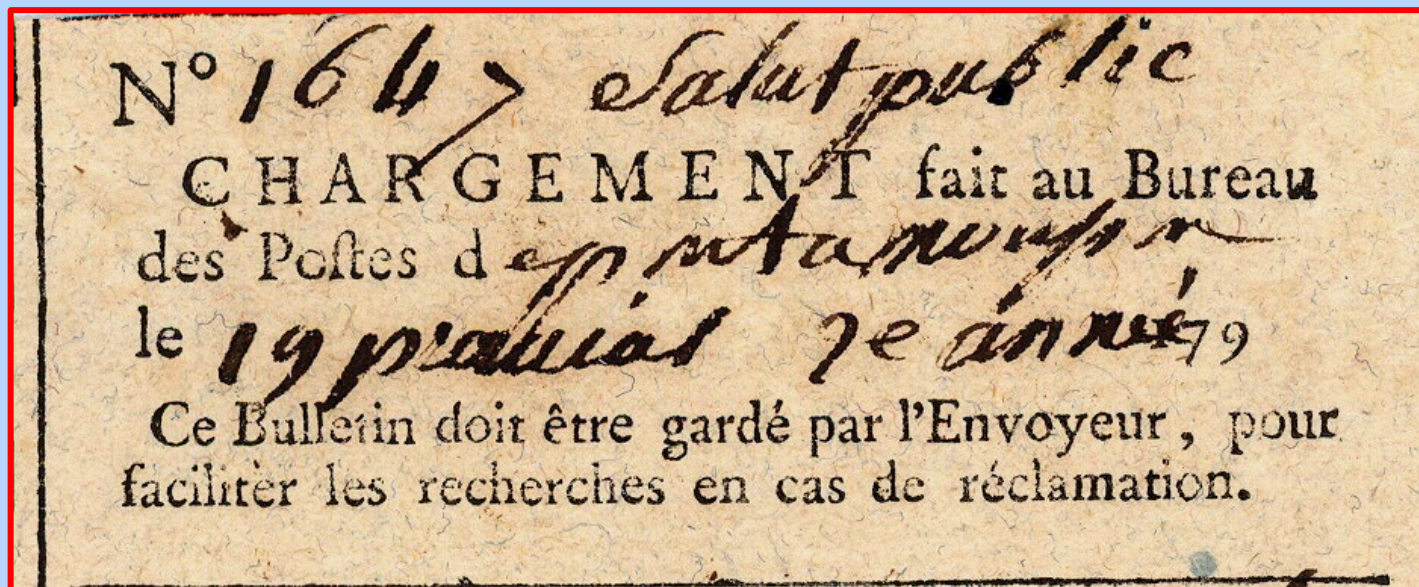 N° 1647 Salut public
CHARGEMENT fait au Bureau
des Poſtes d
le 19 prairial 2e année 179
Ce Bulletin doit être gardé par l'Envoyeur, pour
faciliter les recherches en cas de réclamation.